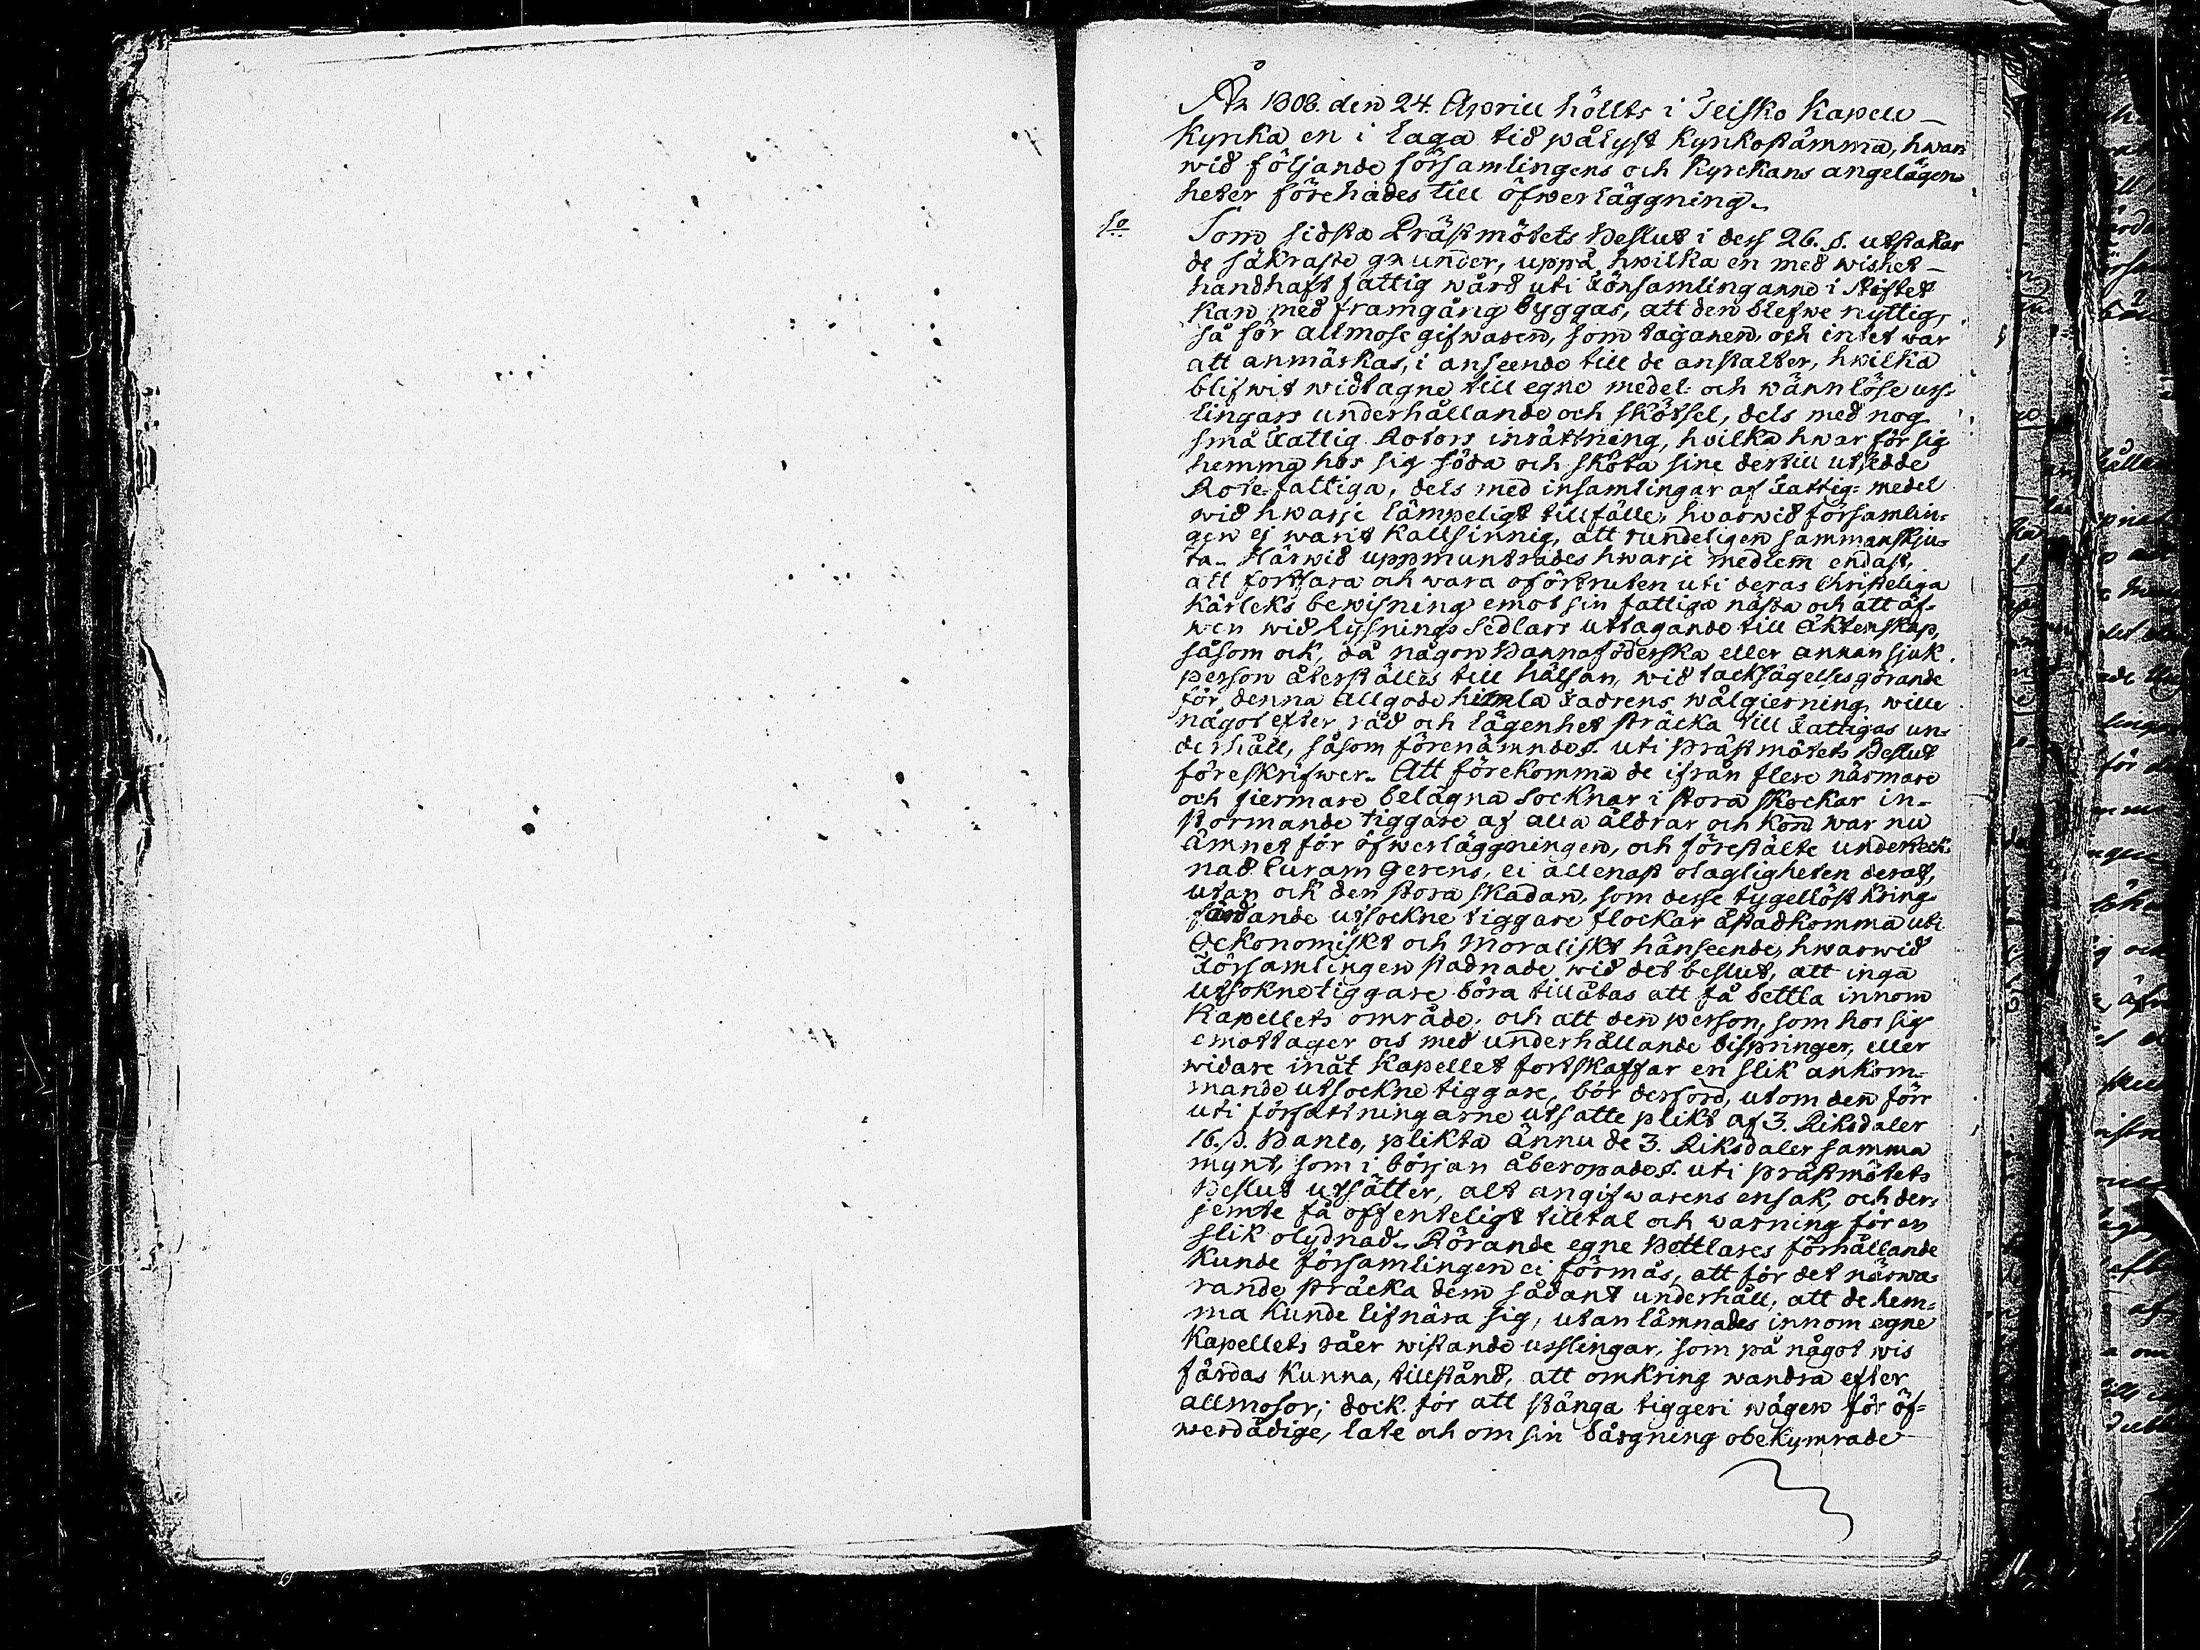 År 1808. den 24. Aprill höllts i Teisko Kapell
Kyrka en i laga tid pålyst Kyrkostämma, hwar
wid följande församlingens och Kyrckans angelägen-
heter förehades till öfwerläggning.
1o
Som sidsta Prästmötets Beslut i dess 26. §. utstakar
de säkraste grunder, uppå hwilka en med wishet
handhaft fattig wård uti Församlingarne i Stiftet
kan med framgång byggas, att den blefwe nyttig,
så för allmose gifwaren, som tagaren, och intet war
att anmärkas, i anseende till de anstalter, hwilka
blifwit widtagne till egne medel- och wännlöse uss-
lingars underhållande och skötsel, dels med nog
små Fattig Rotors inrättning, hvilka hwar för sig
hemma hos sig föda och sköta sine dertill utsedde
Rote-fattiga, dels med insamlingar af Fattig-medel
wid hwarje lämpeligt tillfälle, hvarwid församlin-
gen ej warit kallsinnig, att rundeligen sammanskju-
ta. Härwid uppmuntrades hwarje medlem endast,
att fortfara och wara oförtruten uti deras Christeliga
Kärleks bewisning emot sin fattiga nästa och att äf-
wen wid Lysnings Sedlars uttagande till Äktenskap,
såsom ock, då någon Barnaföderska eller annan sjuk
person återställes till hälsan, wid tacksägelses görande
för denna allgode himla Fadrens wälgierning, wille
något efter råd och lägenhet sträcka till Fattigas un-
derhåll, såsom förenämnde §. uti Prästmötets Beslut
föreskrifwer. Att förekomma de ifrån flere närmare
och fiermare belägna Socknar i stora skockar in-
stormande tiggare af alla åldrar och Kön war nu
ämnet för öfwerläggningen, och förestälte underteck-
nad Curam Gerens, ei allenast olagligheten deraf,
utan ock den stora skadan, som desse tygellöst kring-
farande utsockne tiggare flockar åstadkomma uti
Oekonomiskt och Moraliskt hänseende, hwarwid
Församlingen stadnade wid det beslut, att inga
utsokne tiggare böra tillåtas att få bettla innom
Kapellets område, och att den person, som hos sig
emottager och med underhållande bispringer, eller
widare inåt Kapellet fortskaffar en slik ankom-
mande utsockne tiggare, bör derförd, utom den för
uti författningarne utsatte plikt af 3. Riksdaler
16. s. Banco, plikta ännu de 3. Riksdaler samma
mynt, som i början åberopade §. uti Prästmötets
Beslut utsätter, alt angifwarens ensak, och der-
jemte få offenteligt tilltal och warning för en
slik olydnad. Rörande egne Bettlares förhållande
Kunde församlingen ei förmås, att för det närwa-
rande sträcka dem sådant underhåll, att de hem-
ma Kunde lifnära sig, utan lämnades innom egne
Kapellets råer wistande usslingar, som på något wis
färdas Kunna, tillstånd, att omkring wandra efter
allmosor; dock för att stänga tiggeri wägen för öf-
werdådige, late och om sin bärgning obekymrade